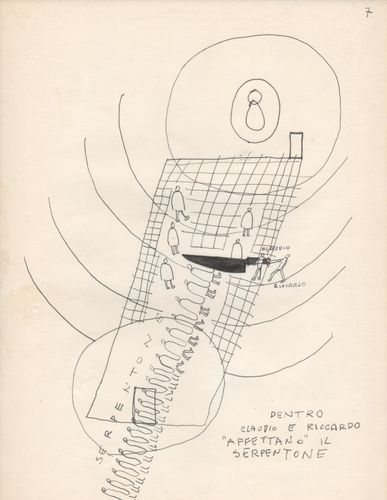 7
CLAUDIO
RICCARDO
SERPENTON
DENTRO
CLAUDIO E RICCARDO
"AFFETTANO" IL
SERPENTONE